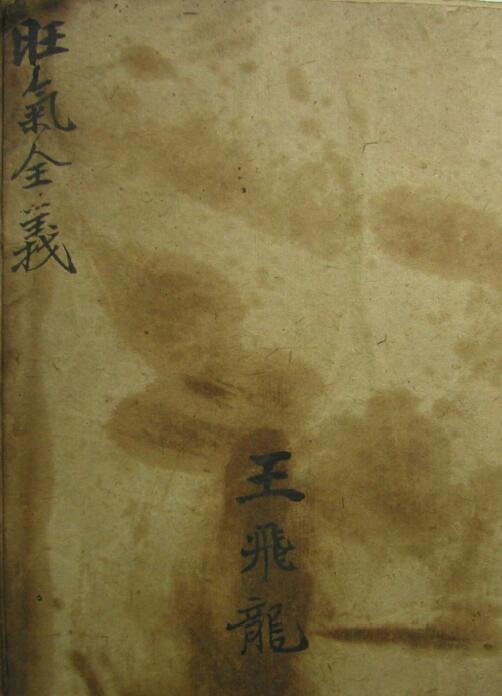 旺氣全義
王飛龍